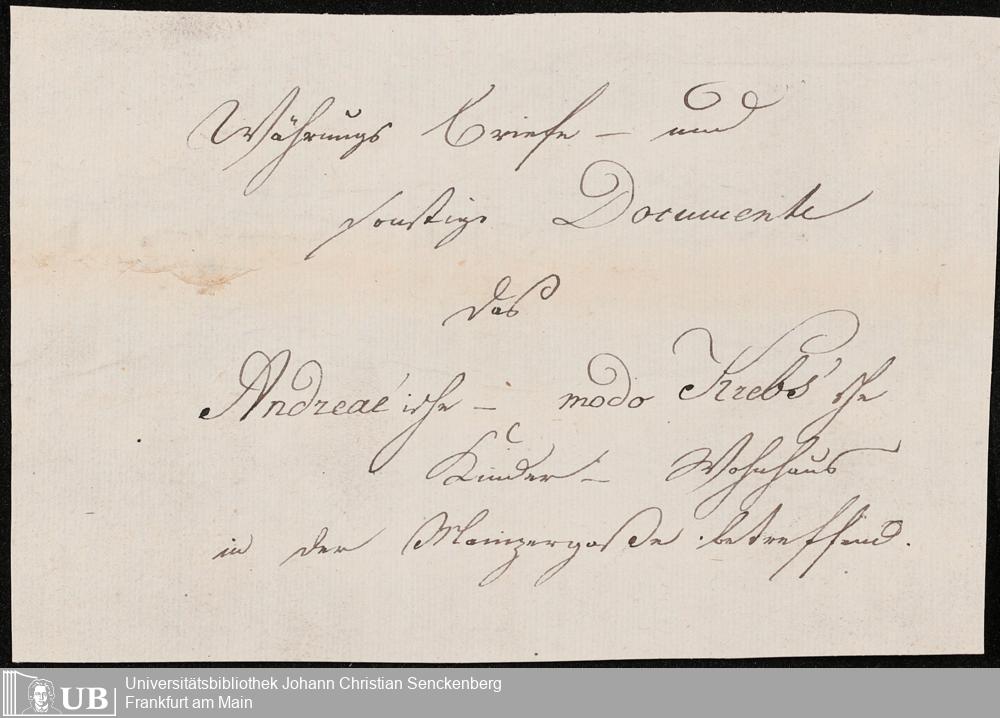 Währungs Briefe – und
sonstige Documente
das
Andreae'ische – modo Krebs'sche
Kinder – Wohnhaus
in der Mainzergaße betreffend.
UB
Universitätsbibliothek Johann Christian Senckenberg
Frankfurt am Main